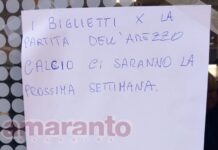 I BIGLIETTI X LA
PARTITA DELL'AREZZO
CALCIO CI SARANNO LA
PROSSIMA SETTIMANA.
amaranto